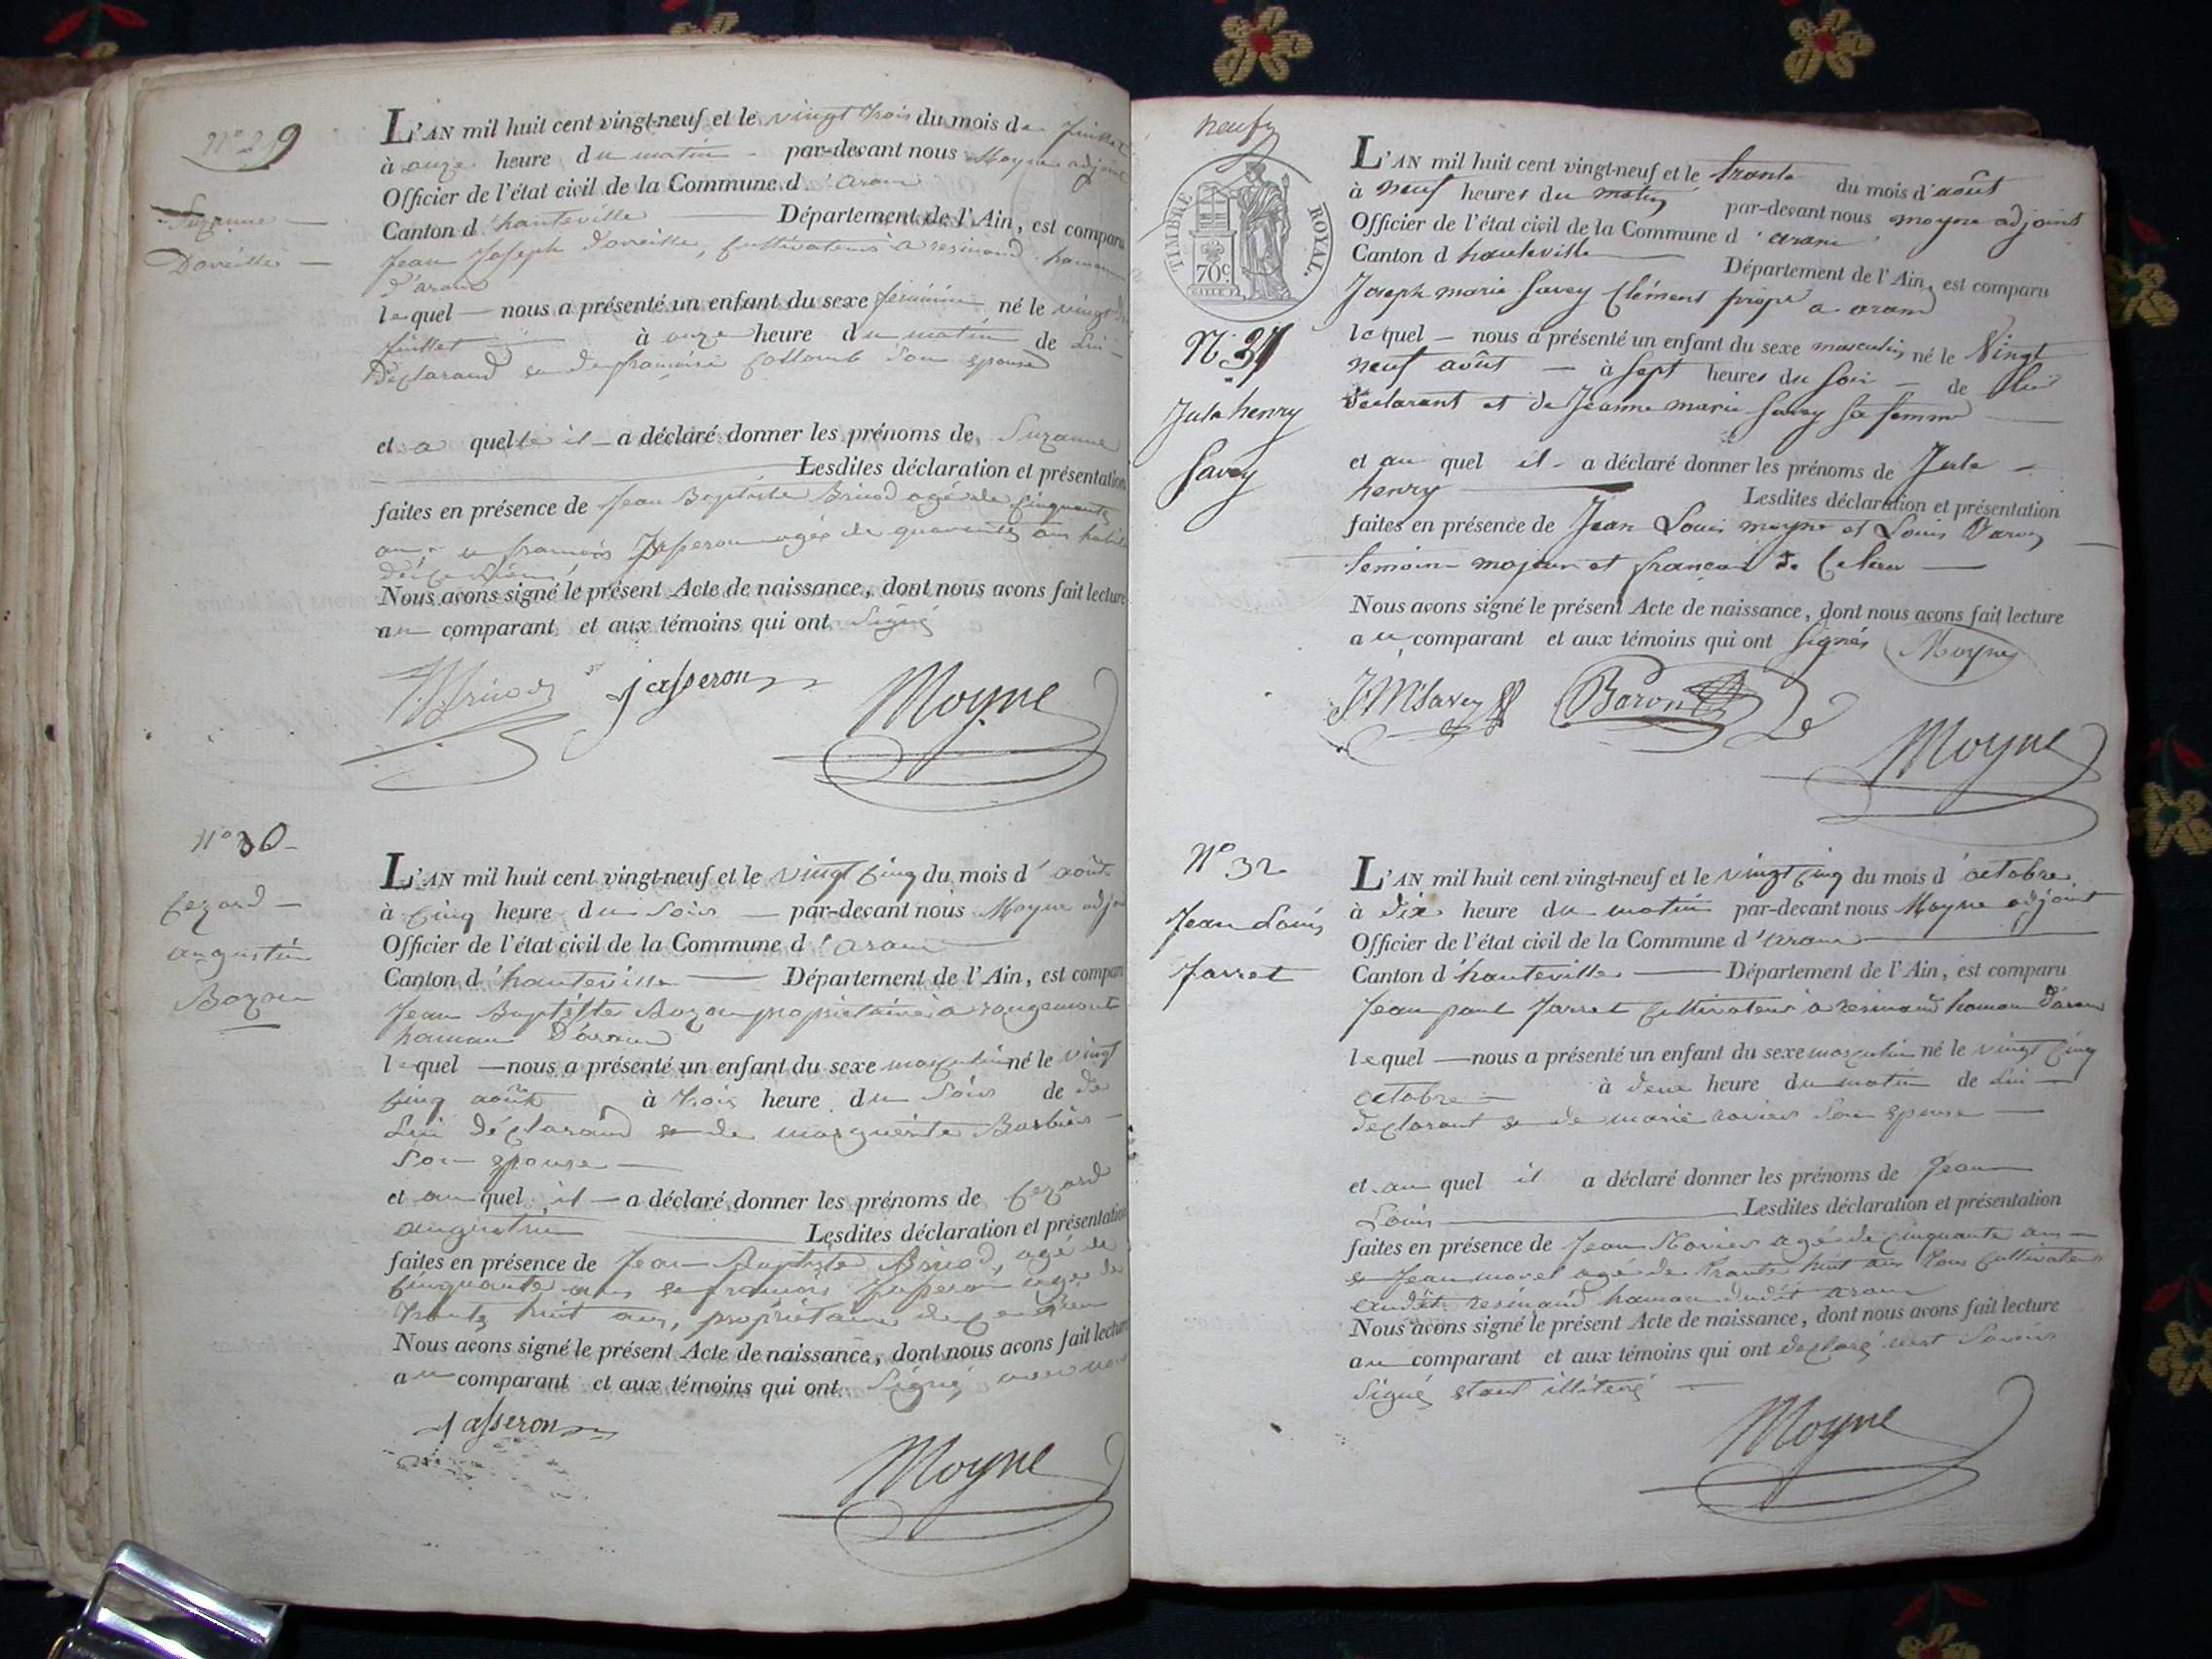 N° 29
Suzanne
Doreille
L'AN mil huit cent vingt-neuf et le vingt trois du mois de juillet
à onze heure du matin par-devant nous Moyne adjoint
Officier de l'état civil de la Commune d'aranc
Canton d'hauteville Département de l'Ain, est comparu
jean joseph doreille, cultivateur a resinand hamau
d'aranc
lequel nous a présenté un enfant du sexe féminin né le vingt
juillet à onze heure du matin de lui
declarand et de françoise Collomb son epouse
et a quelle il a déclaré donner les prénoms de Suzanne
Lesdites déclaration et présentation
faites en présence de jean Baptiste Bricod agé de cinquante
ans et françois jasseron agé de quarante ans
Nous avons signé le présent Acte de naissance, dont nous avons fait lecture
au comparant et aux témoins qui ont signé
jasseron
Moyne
N° 30
Cezard
augustin
Bozon
L'AN mil huit cent vingt-neuf et le vingt cinq du mois d'août
à cinq heure du soir par-devant nous Moyne adjoint
Officier de l'état civil de la Commune d'aranc
Canton d'hauteville Département de l'Ain, est comparu
jean Baptiste Bozon propriétaire a rougemont
hamau D'aranc
lequel nous a présenté un enfant du sexe masculin né le vingt
cinq août à trois heure du soir de de
lui déclarand et de marguerite Barbier
son epouse
et au quel il a déclaré donner les prénoms de Cezard
augustin Lesdites déclaration et présentation
faites en présence de jean Baptiste Bricod, agé de
cinquante ans et françois jasseron agé de
trante huit ans, propriétaire
Nous avons signé le présent Acte de naissance, dont nous avons fait lecture
au comparant et aux témoins qui ont signé avec nous
jasseron
Moyne
neuf
TIMBRE ROYAL
70c
N° 31
Jule henry
Savey
L'AN mil huit cent vingt-neuf et le trente du mois d'août
à neuf heures du matin par-devant nous moyne adjoint
Officier de l'état civil de la Commune d'aranc
Canton d hauteville Département de l'Ain, est comparu
Joseph marie Savey Clément propr a aranc
lequel nous a présenté un enfant du sexe masculin né le Vingt
neuf août à sept heures du soir de lui
déclarant et de Jeanne marie Savey sa femme
et au quel il a déclaré donner les prénoms de Jule
henry Lesdites déclaration et présentation
faites en présence de Jean Louis moyne et Louis Baron
temoins majeurs et français de
Nous avons signé le présent Acte de naissance, dont nous avons fait lecture
au comparant et aux témoins qui ont signés Moyne
J M Savey Baron
Moyne
N° 32
Jean Louis
Jarret
L'AN mil huit cent vingt-neuf et le vingt cinq du mois d'octobre
à dix heure du matin par-devant nous Moyne adjoint
Officier de l'état civil de la Commune d'aranc
Canton d'hauteville Département de l'Ain, est comparu
Jean paul Jarret cultivateur a resinand hamau d'aranc
lequel nous a présenté un enfant du sexe masculin né le vingt cinq
octobre à deux heure du matin de lui
declarant et de marie ravier son epouse
et au quel il a déclaré donner les prénoms de Jean
Louis Lesdites déclaration et présentation
faites en présence de Jean Ravier agé de cinquante ans
et Jean morel agé de trante huit ans tous cultivateur
audit resinand hamau dudit aranc
Nous avons signé le présent Acte de naissance, dont nous avons fait lecture
au comparant et aux témoins qui ont declaré savoir
signé etant illiteré
Moyne